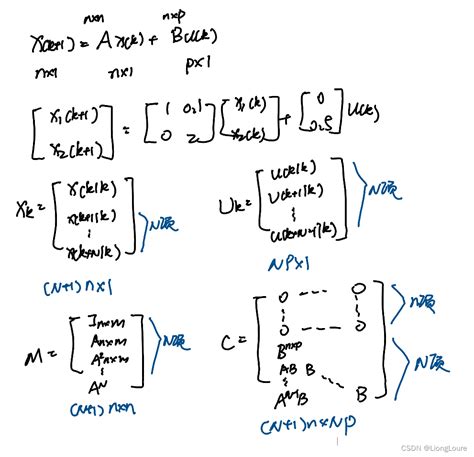 n×n n×p
x(k+1) = A x(k) + B u(k)
n×1 n×1 p×1
[x₁(k+1) x₂(k+1)] = [1 0.1 0 2] [x₁(k) x₂(k)] + [0 0.5] u(k)
Xk = [x(k|k) x(k+1|k) ⋮ x(k+N|k)] N项
(N+1)n×1
Uk = [u(k|k) u(k+1|k) ⋮ u(k+N-1|k)] N项
Np×1
M = [I n×m A n×m A² n×m ⋮ Aᴺ] N项
(N+1)n×n
C = [0 --- 0 ⋮ ⋮ 0 --- 0 B n×p AB B ⋮ Aᴺ⁻¹B --- B] n项 N项
(N+1)n×Np
CSDN @LiongLoure